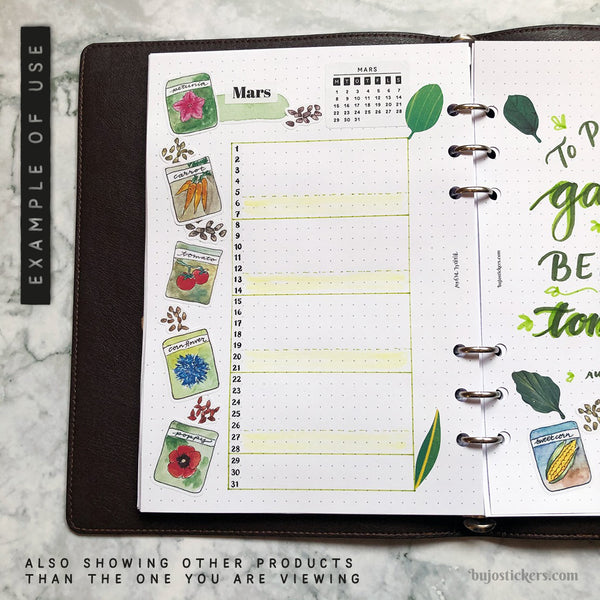 EXAMPLE OF USE
petunia
Mars
MARS
M T O T F L S
1 2 3 4 5 6 7
8 9 10 11 12 13 14
15 16 17 18 19 20 21
22 23 24 25 26 27 28
29 30 31
carrot
tomato
cornflower
poppy
1
2
3
4
5
6
7
8
9
10
11
12
13
14
15
16
17
18
19
20
21
22
23
24
25
26
27
28
29
30
31
bujostickers.com
TO P
ga
BE
tom
AU
sweetcorn
ALSO SHOWING OTHER PRODUCTS
THAN THE ONE YOU ARE VIEWING
bujostickers.com